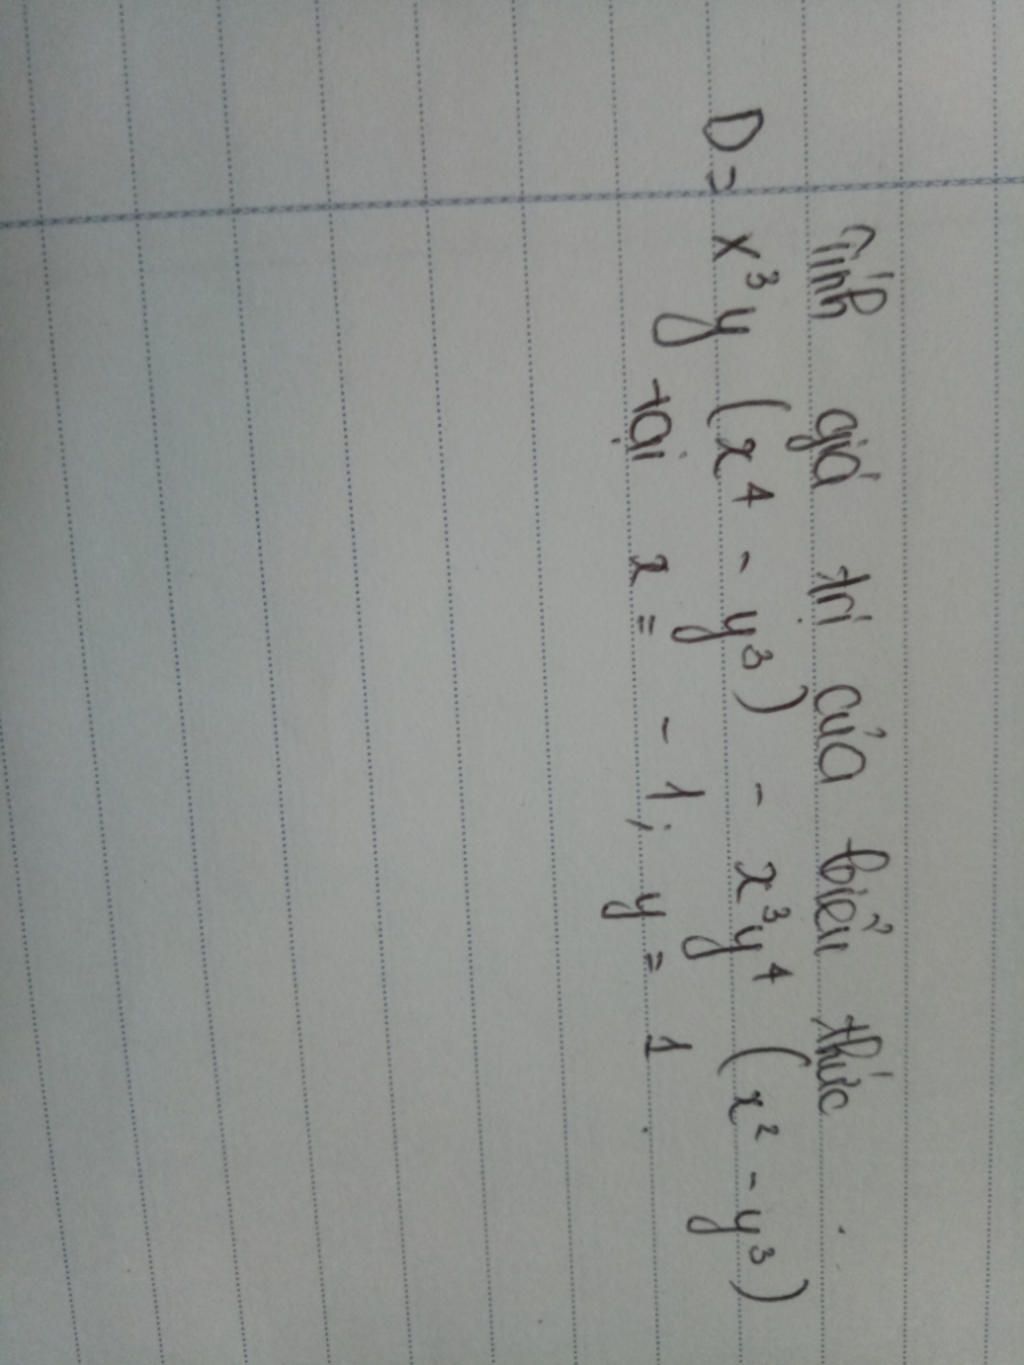 Tính giá trị của biểu thức.
D = x³y (x⁴ - y³) - x³y⁴ (x² - y³)
tại x = - 1; y = 1.